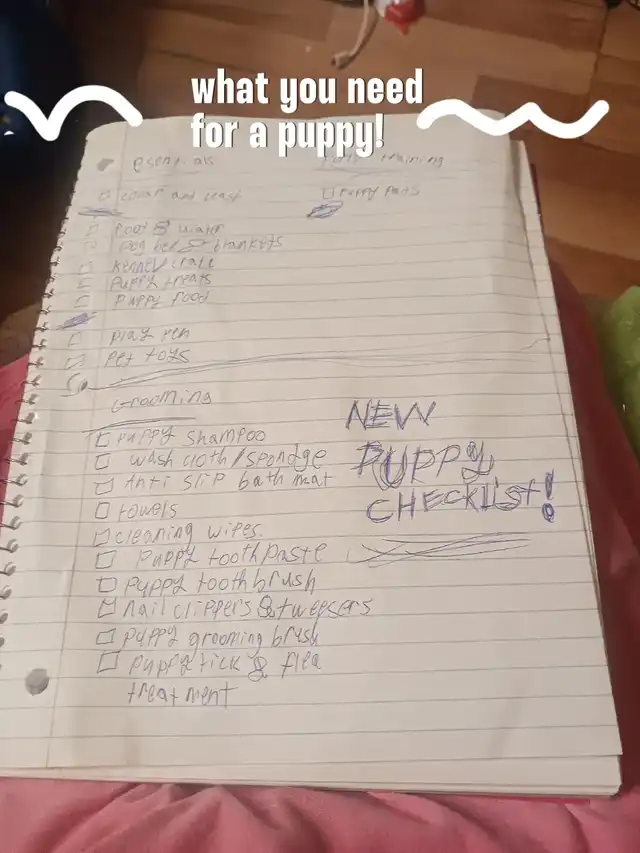 what you need
for a puppy!
esentials
Potty training
collar and leash
puppy pads
food & water
Dog bed & blankets
Kennel crate
puppy treats
puppy food
play pen
pet toys
Grooming
puppy shampoo
wash cloth/spondge
Anti slip bath mat
towels
cleaning wipes.
puppy toothpaste
puppy toothbrush
nail clippers & tweesers
puppy grooming brush
puppy tick & flea
treatment
NEW
PUPPY
CHECKlist!